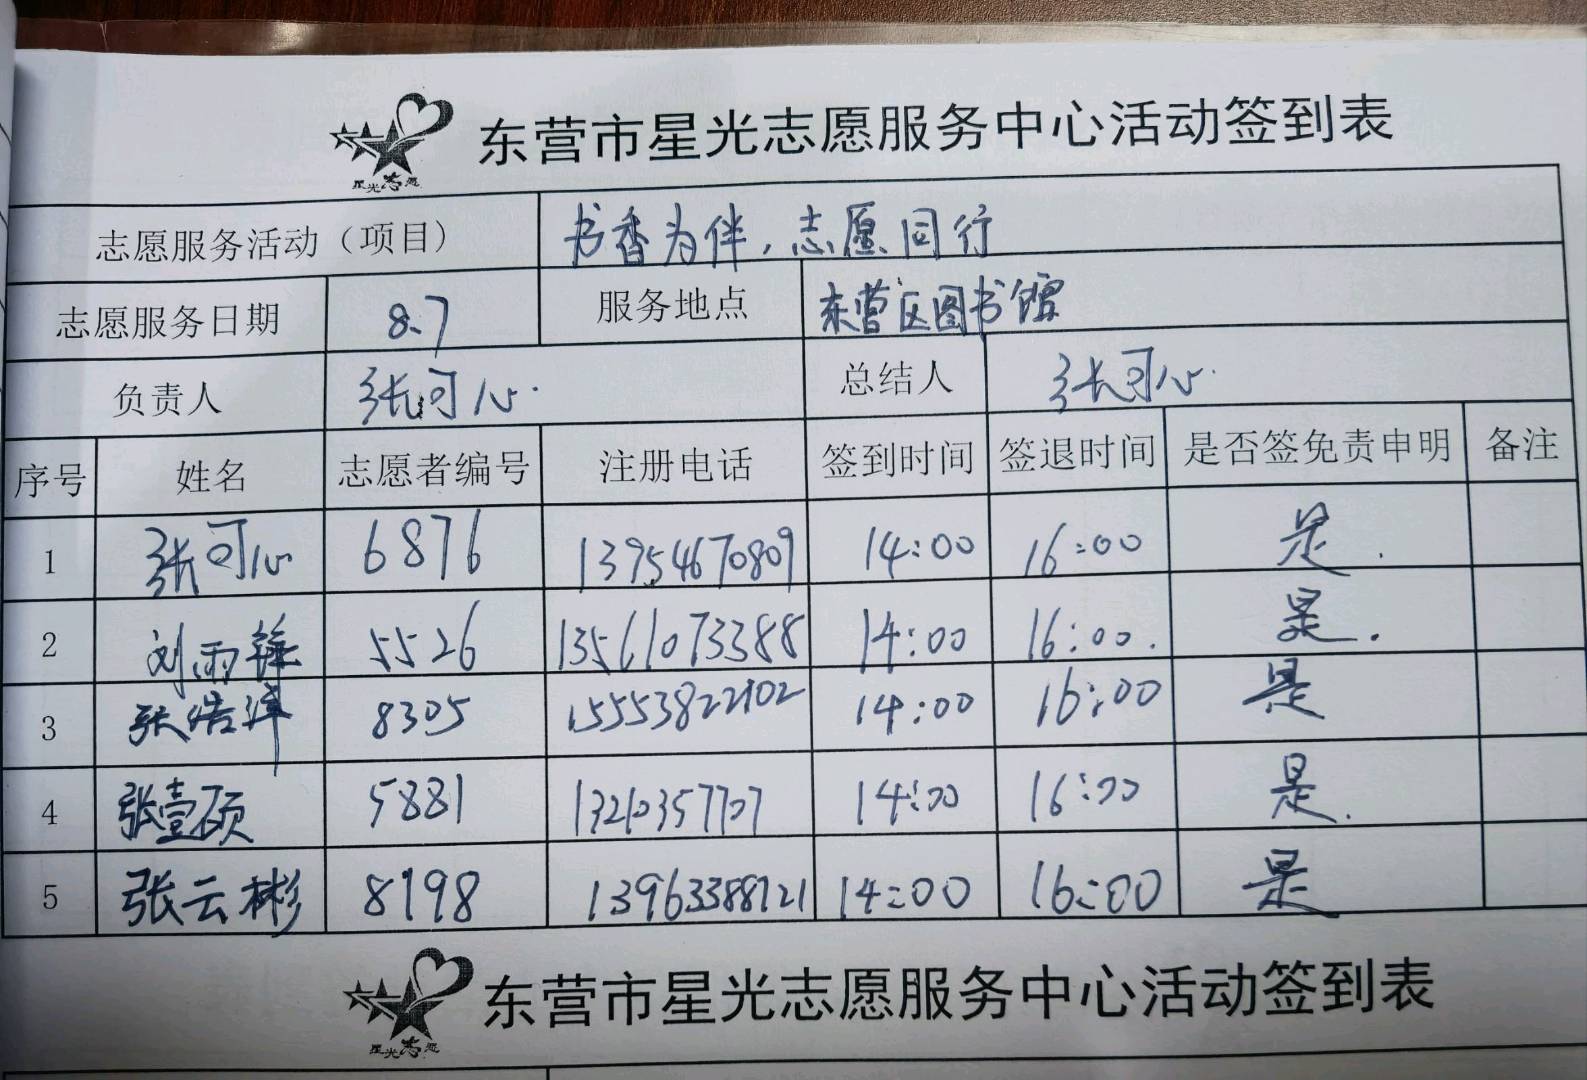 东营市星光志愿服务中心活动签到表
星光志愿
志愿服务活动（项目） 书香为伴，志愿同行
志愿服务日期 8.7 服务地点 东营区图书馆
负责人 张可心. 总结人 张可心.
序号 姓名 志愿者编号 注册电话 签到时间 签退时间 是否签免责申明 备注
1 张可心 6876 13954670809 14:00 16:00 是.
2 刘雨锋 5526 13561073388 14:00 16:00. 是.
3 张浩洋 8305 15553822102 14:00 16:00 是
4 张壹硕 5881 13210357707 14:00 16:00 是.
5 张云彬 8198 13963388721 14:00 16:00 是
东营市星光志愿服务中心活动签到表
星光志愿